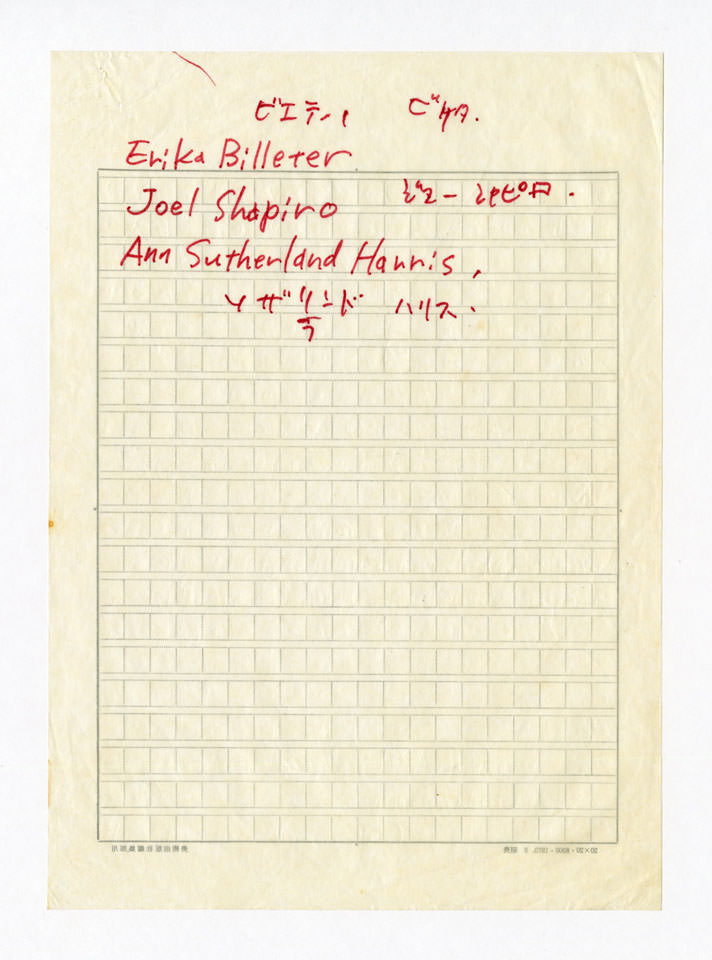 ビエティ ビケタ.
Erika Billeter
Joel Shapiro ジュー シャピロ.
Ann Sutherland Harris,
ソザリンド ハリス.
ラ